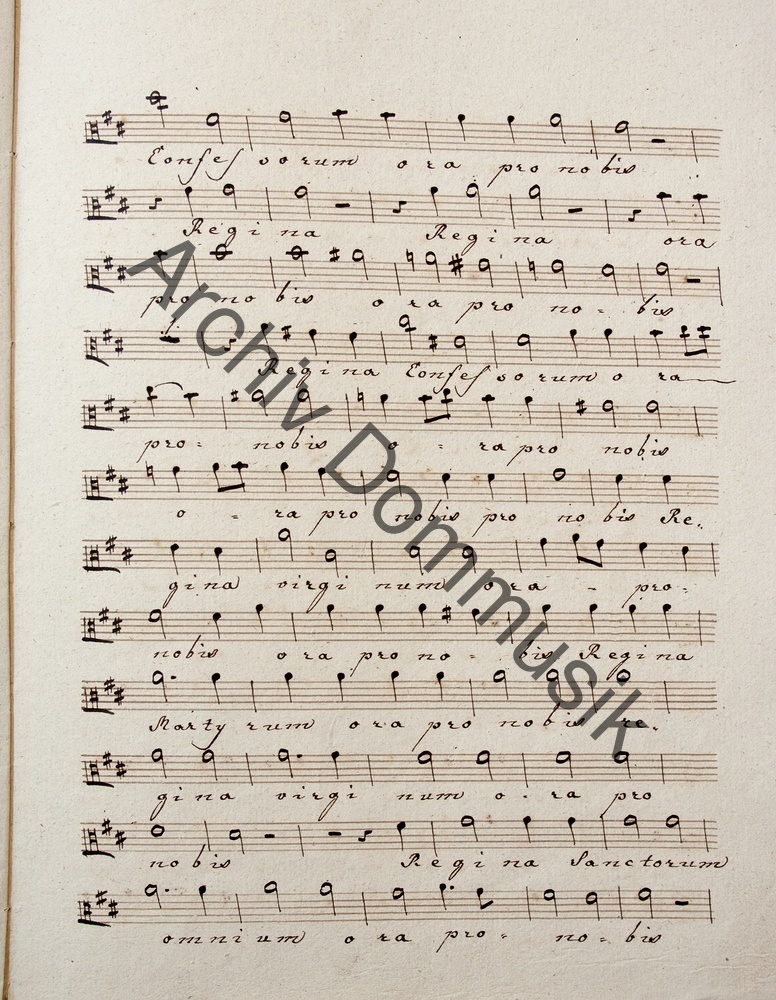 Confes sorum ora pro nobis
Regina Regina ora
pro nobis ora pro no - bis
Regina Confes sorum o ra
pro - nobis o - ra pro nobis
o - ra pro nobis pro nobis Re-
gina virginum ora - pro-
nobis ora pro no - bis Regina
Martyrum ora pro nobis re-
gina virginum o - ra pro
nobis Regina Sanctorum
omnium ora pro - no - bis
Archiv Dommusik